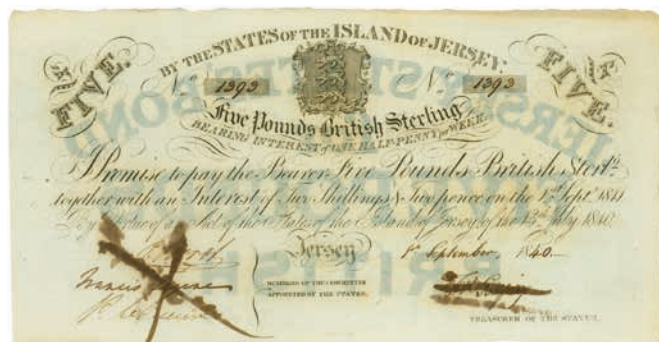 BY THE STATES OF THE ISLAND OF JERSEY.
£5 FIVE. £5 FIVE.
No. 1393 No. 1393
Five Pounds British Sterling
BEARING INTEREST of ONE HALF-PENNY per WEEK.
I Promise to pay the Bearer Five Pounds British Sterlg.
together with an Interest of Two Shillings & Two pence on the 1st Septr. 1841
By Virtue of an Act of the States of the Island of Jersey of the 13th July 1840
Jersey 1st September, 1840
Francis
MEMBERS OF THE COMMITTEE
APPOINTED BY THE STATES.
TREASURER OF THE STATES.
JERSEY STATES BOND
BRITISH